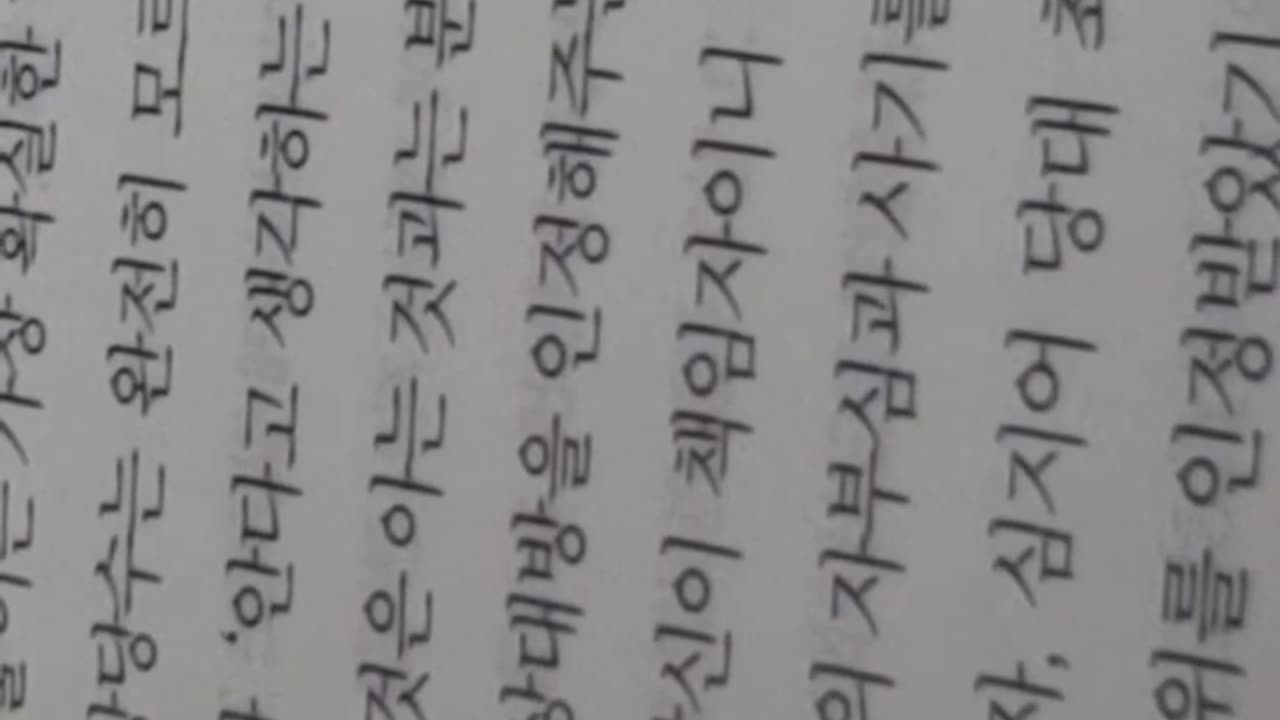 가장 확실한
상당수는 완전히 모르
'안다고 생각하는
것은 아는 것과는 분
상대방을 인정해주
당신이 책임자이니
의 자부심과 사기를
자, 심지어 당대 최
위를 인정받았기